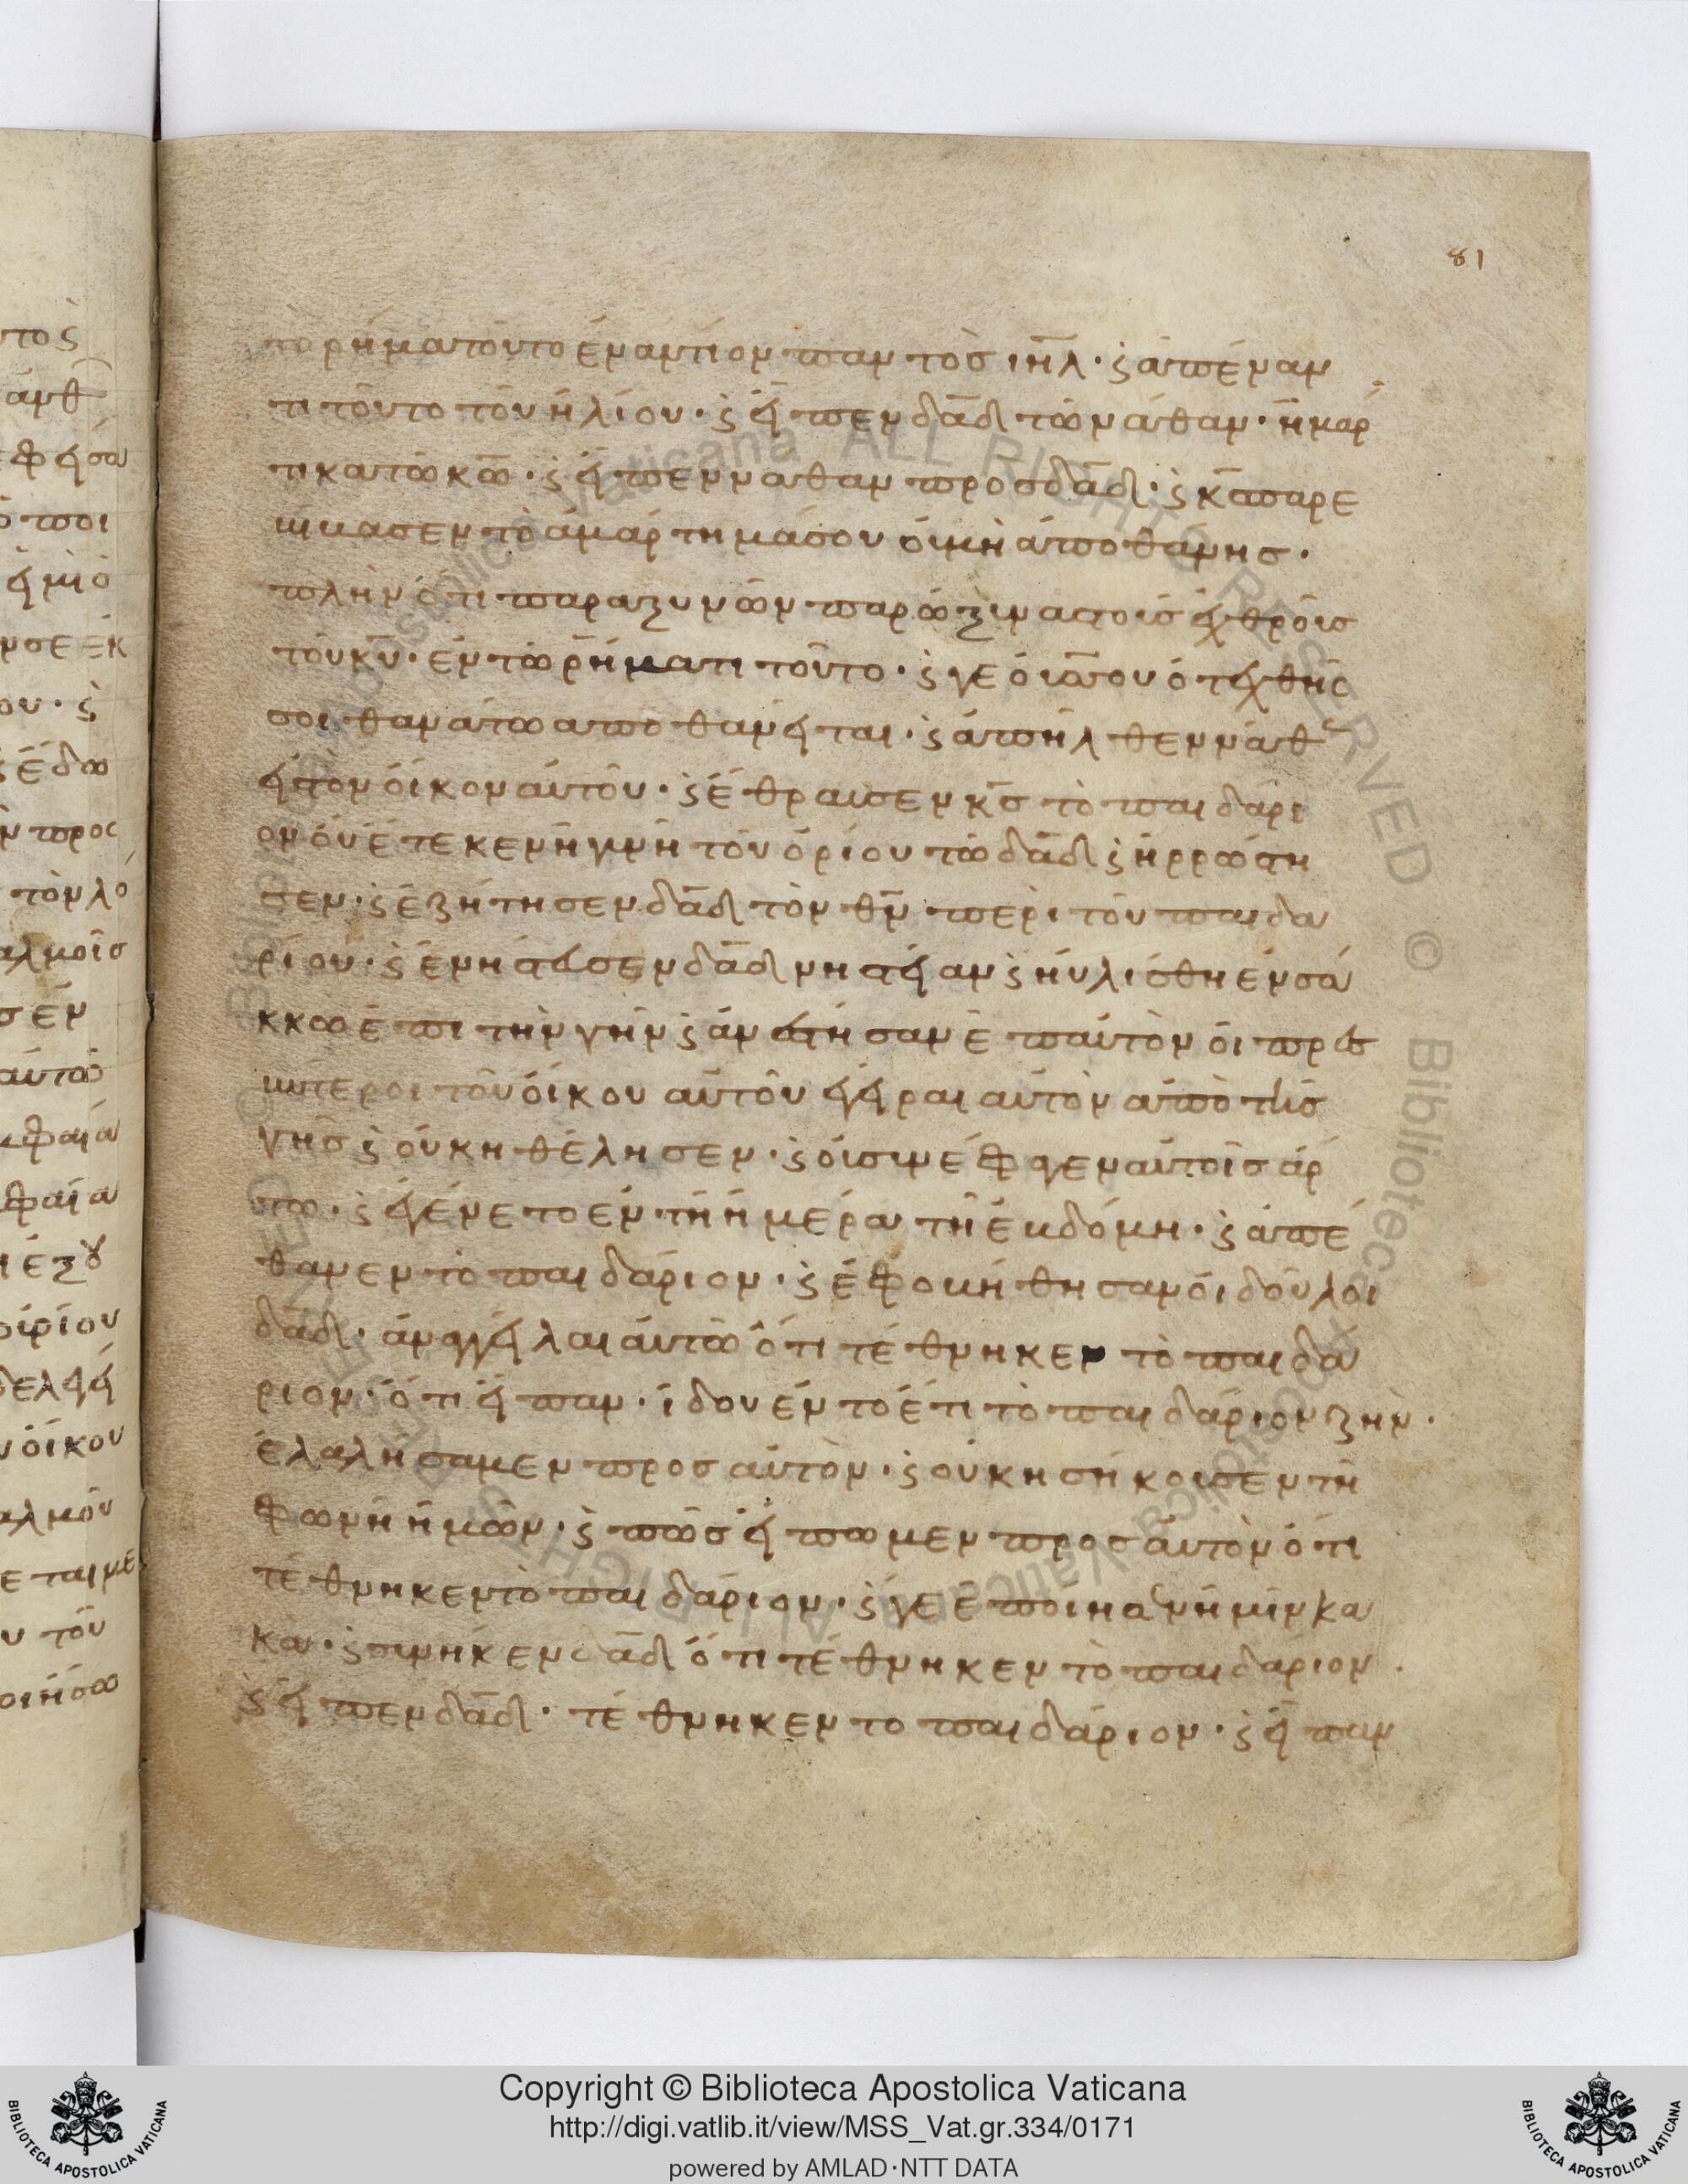 81
τὸ ρῆμα τοῦτο ἐναντίον παντὸσ ιη̅λ · ϛ ἀπέναν
τι τοῦτο τοῦ ἡλίου · ϛ εἶπεν δα̅δ τῶ νάθαν · ἡμάρ
τικα τῶ κω̅ · ϛ εἶπεν ναθαν προσ δα̅δ · ϛ κ̅σ παρε
βίβασεν τὸ ἁμάρτημά σου οὐ μὴ ἀποθάνησ ·
πλὴν ὅτι παραξυνῶν παρώξυνασ τοισ ἐχθροῖσ
τοῦ κυ̅ · ἐν τῶ ρήματι τούτο · ϛ γε ὁ υἱόσ σου ὁ τεχθείσ
σοι θανάτω αποθανεῖται · ϛ ἀπῆλθεν νάθ
εἰσ τὸν οἶκον αὐτοῦ · ϛ ἔθραυσεν κ̅σ τὸ παιδάρι
ον ὃν έτεκεν ἡ γυνὴ τοῦ ὀρίου τῶ δα̅δ ϛ ἠρρώστη
σεν · ϛ ἐζήτησεν δα̅δ τὸν θν̅ περὶ τοῦ παιδα
ρίου · ϛ ἐνήστευσεν δα̅δ νηστείαν ϛ ηὐλίσθη ἐν σά
κκω ἐπι τὴν γῆν ϛ ἀνέστησαν ἐπ αὐτὸν οἱ πρεσ
βύτεροι τοῦ οἴκου αὐτοῦ ἐγεῖραι αὐτὸν ἀπὸ τῆσ
γῆσ ϛ οὐκ ηθέλησεν · ϛ οὐ συνέφαγεν αὐτοῖσ άρ
τω · ϛ ἐγένετο ἐν τῆ ἡμέρα τῆ ἑβδόμη · ϛ ἀπέ
θανεν τὸ παιδάριον · ϛ ἐφοβήθησαν οἱ δοῦλοι
δα̅δ · ἀναγγεῖλαι αὐτῶ ὅτι τέθνηκεν τὸ παιδά
ριον · ὅτι εἶπαν · ἰδου ἐν το έτι τὸ παιδάριον ζῆν ·
ἐλαλήσαμεν προσ αὐτὸν · ϛ οὐκ ησήκουσεν τῆ
φωνῆ ἡμῶν · ϛ πῶσ εἴπωμεν προσ αὐτὸν ὅτι
τέθνηκεν τὸ παιδάριον · ϛ γε ἐποίησεν ἡμῖν κα
κα · ϛ συνῆκεν δα̅δ ὅτι τέθνηκεν τὸ παιδάριον ·
ϛ εἶπεν δα̅δ · τέθνηκεν το παιδάριον · ϛ εἶπαν
Copyright © Biblioteca Apostolica Vaticana
http://digi.vatlib.it/view/MSS_Vat.gr.334/0171
powered by AMLAD·NTT DATA
BIBLIOTECA APOSTOLICA VATICANA
BIBLIOTECA APOSTOLICA VATICANA